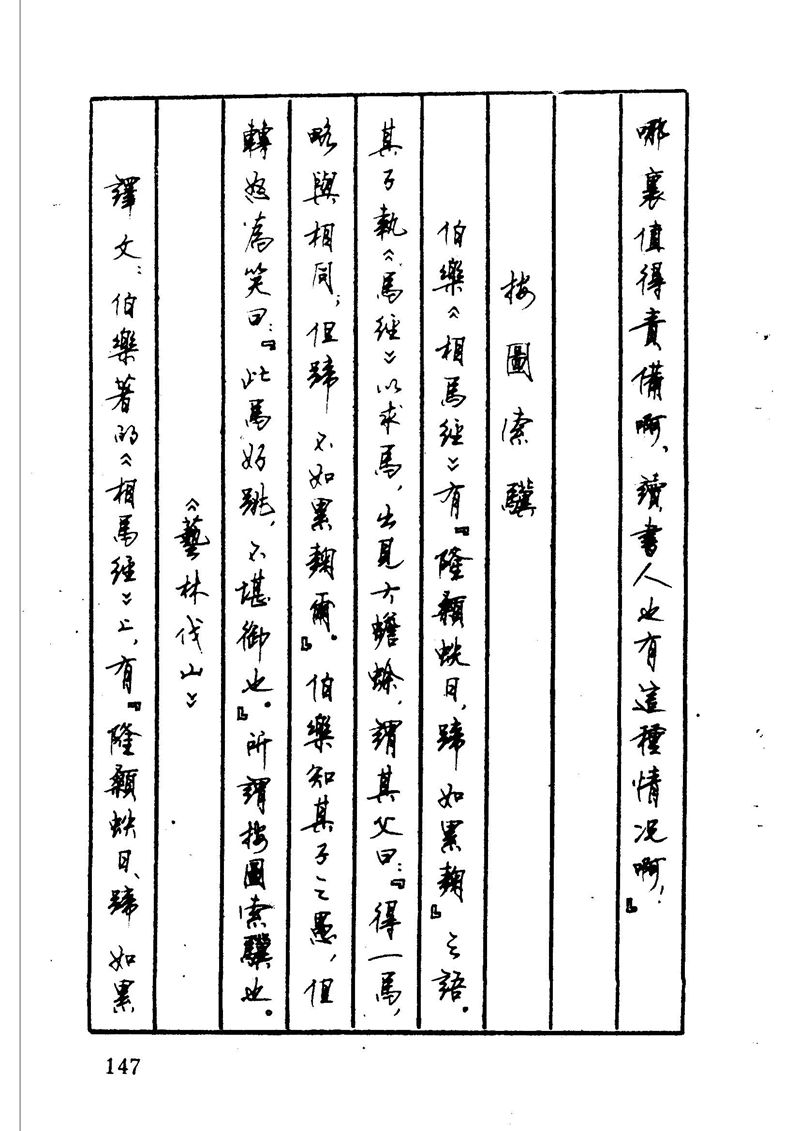 哪裏值得責備啊，讀書人也有這種情况啊！』
按圖索驥
伯樂《相馬經》有『隆顙蚨日，蹄如累麴』之語。
其子執《馬經》以求馬，出見大蟾蜍，謂其父曰：『得一馬，
略與相同；但蹄不如累麴爾』。伯樂知其子之愚，但
轉怒為笑曰：『此馬好跳，不堪御也。』所謂按圖索驥也。
《藝林伐山》
譯文：伯樂著的《相馬經》上，有『隆顙蚨日、蹄如累
147